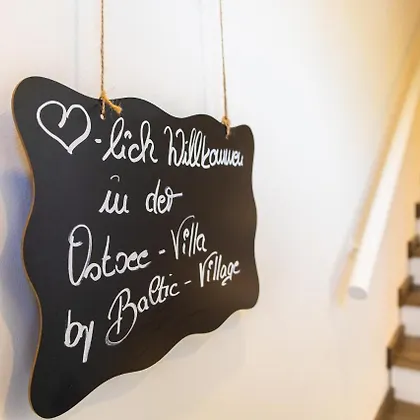 ♡-lich Willkommen
in der
Ostsee-Villa
by Baltic-Village